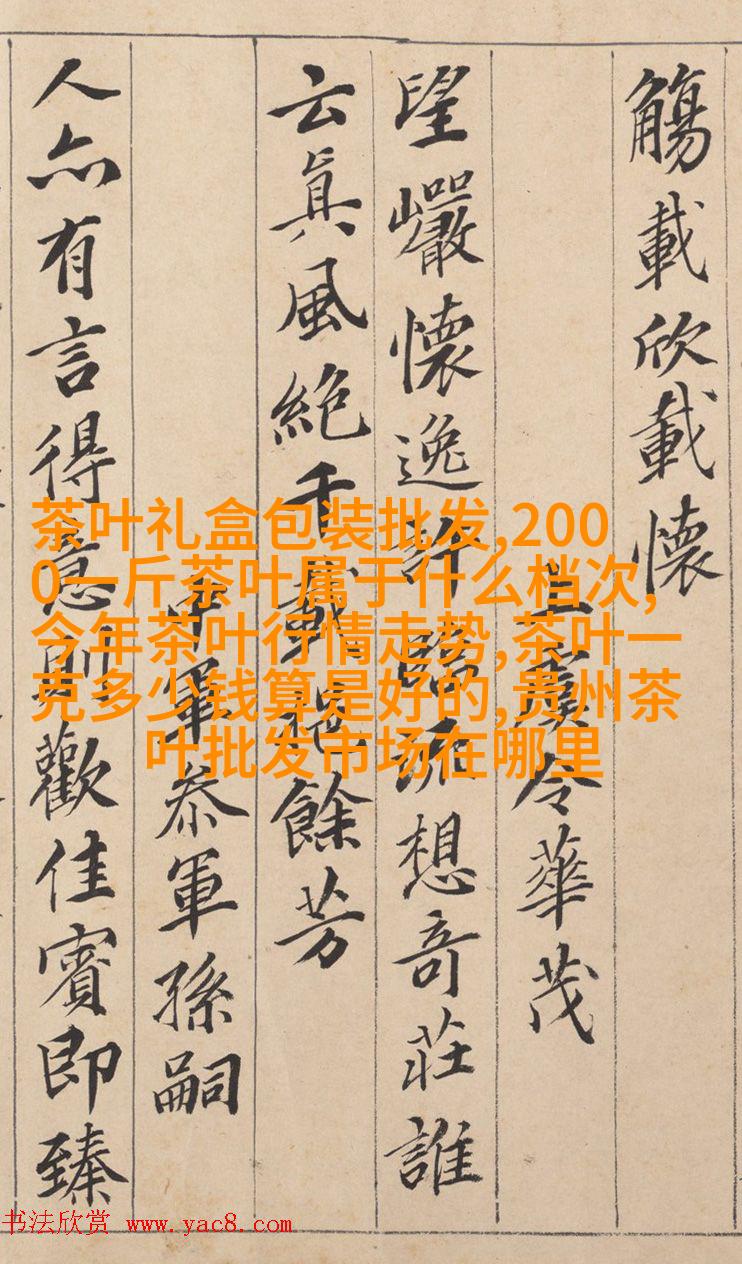 觴載欣載懷
上虞令華茂
望巗懷逸許臨流想奇莊誰
云眞風絶千載挹餘芳
中軍叅軍孫嗣
人亦有言得意則歡佳賓即臻
茶叶礼盒包装批发,200
0一斤茶叶属于什么档次,
今年茶叶行情走势,茶叶一
克多少钱算是好的,贵州茶
叶批发市场在哪里
书法欣赏 www.yac8.com